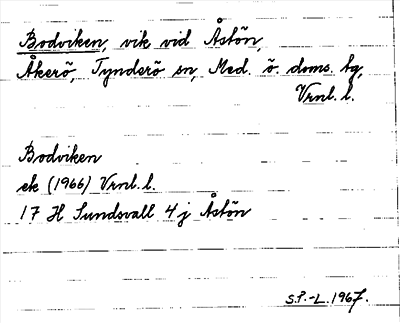 Bodviken, vik vid Åstön,
Åkerö, Tynderö sn, Med. ö. doms. tg,
Vrnl. l.
Bodviken
ek (1966) Vrnl. l.
17 H Sundsvall 4 j Åstön
S.P.-L. 1967.